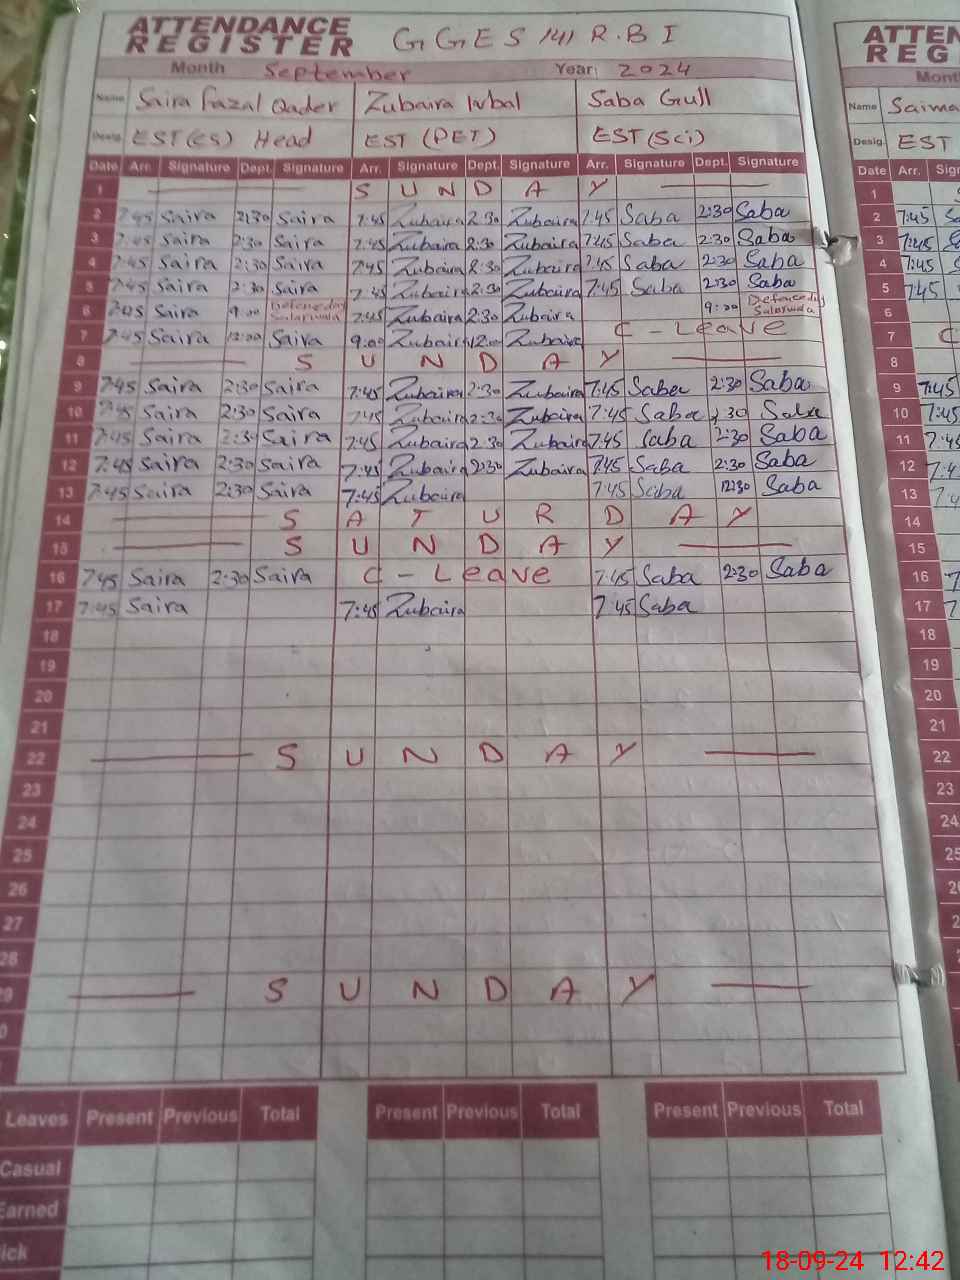 ATTENDANCE REGISTER G G E S 141 R.B I
Month September Year: 2024
Name Saira Fazal Qader Zubaira Iqbal Saba Gull
Desig. EST (ES) Head EST (PET) EST (Sci)
Date Arr. Signature Dept. Signature Arr. Signature Dept. Signature Arr. Signature Dept. Signature
1 S U N D A Y
2 7:45 Saira 2:30 Saira 7:45 Zubaira 2:30 Zubaira 7:45 Saba 2:30 Saba
3 7:45 Saira 2:30 Saira 7:45 Zubaira 2:30 Zubaira 7:45 Saba 2:30 Saba
4 7:45 Saira 2:30 Saira 7:45 Zubaira 2:30 Zubaira 7:45 Saba 2:30 Saba
5 7:45 Saira 2:30 Saira 7:45 Zubaira 2:30 Zubaira 7:45 Saba 2:30 Saba
6 7:45 Saira 9:00 Defence day 7:45 Zubaira 2:30 Zubaira 9:00 Defence day
7 7:45 Saira 12:00 Saira 9:00 Zubaira 12:00 Zubaira C - Leave
8 S U N D A Y
9 7:45 Saira 2:30 Saira 7:45 Zubaira 2:30 Zubaira 7:45 Saba 2:30 Saba
10 7:45 Saira 2:30 Saira 7:45 Zubaira 2:30 Zubaira 7:45 Saba 2:30 Saba
11 7:45 Saira 2:30 Saira 7:45 Zubaira 2:30 Zubaira 7:45 Saba 2:30 Saba
12 7:45 Saira 2:30 Saira 7:45 Zubaira 2:30 Zubaira 7:45 Saba 2:30 Saba
13 7:45 Saira 2:30 Saira 7:45 Zubaira 7:45 Saba 12:30 Saba
14 S A T U R D A Y
15 S U N D A Y
16 7:45 Saira 2:30 Saira C - Leave 7:45 Saba 2:30 Saba
17 7:45 Saira 7:45 Zubaira 7:45 Saba
18
19
20
21
22 S U N D A Y
23
24
25
26
27
28
29 S U N D A Y
Leaves Present Previous Total Present Previous Total Present Previous Total
Casual
Earned
ick
ATTEN
REG
Mont
Name Saima
Desig. EST
Date Arr. Sig
1
2 7:45
3 7:45
4 7:45
5 7:45
6
7 C
8
9 7:45
10 7:45
11 7:45
12
13
14
15
16
17
18
19
20
21
22
23
24
18-09-24 12:42